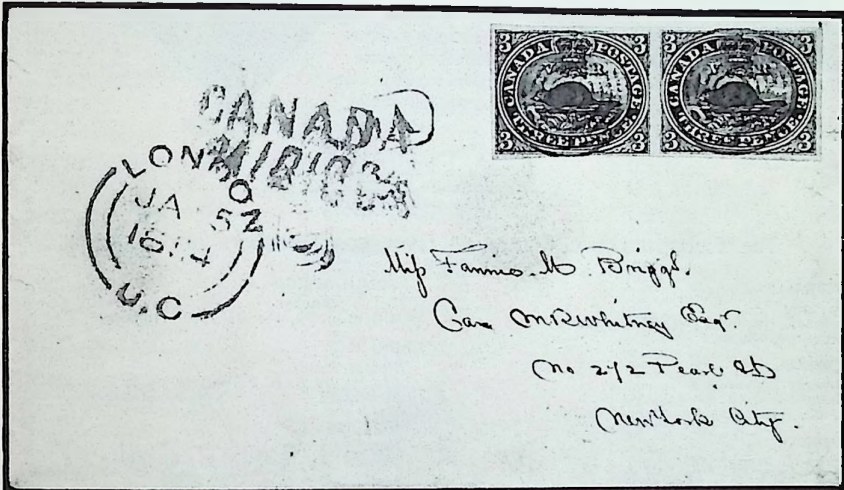 3 CANADA POSTAGE 3
3 THREE PENCE 3
3 CANADA POSTAGE 3
3 THREE PENCE 3
CANADA
LONDON
JA 5
1854
U.C
Miss Fannie M Briggs.
Care M R Whitney Esqr.
No 272 Pearl St
New York City.